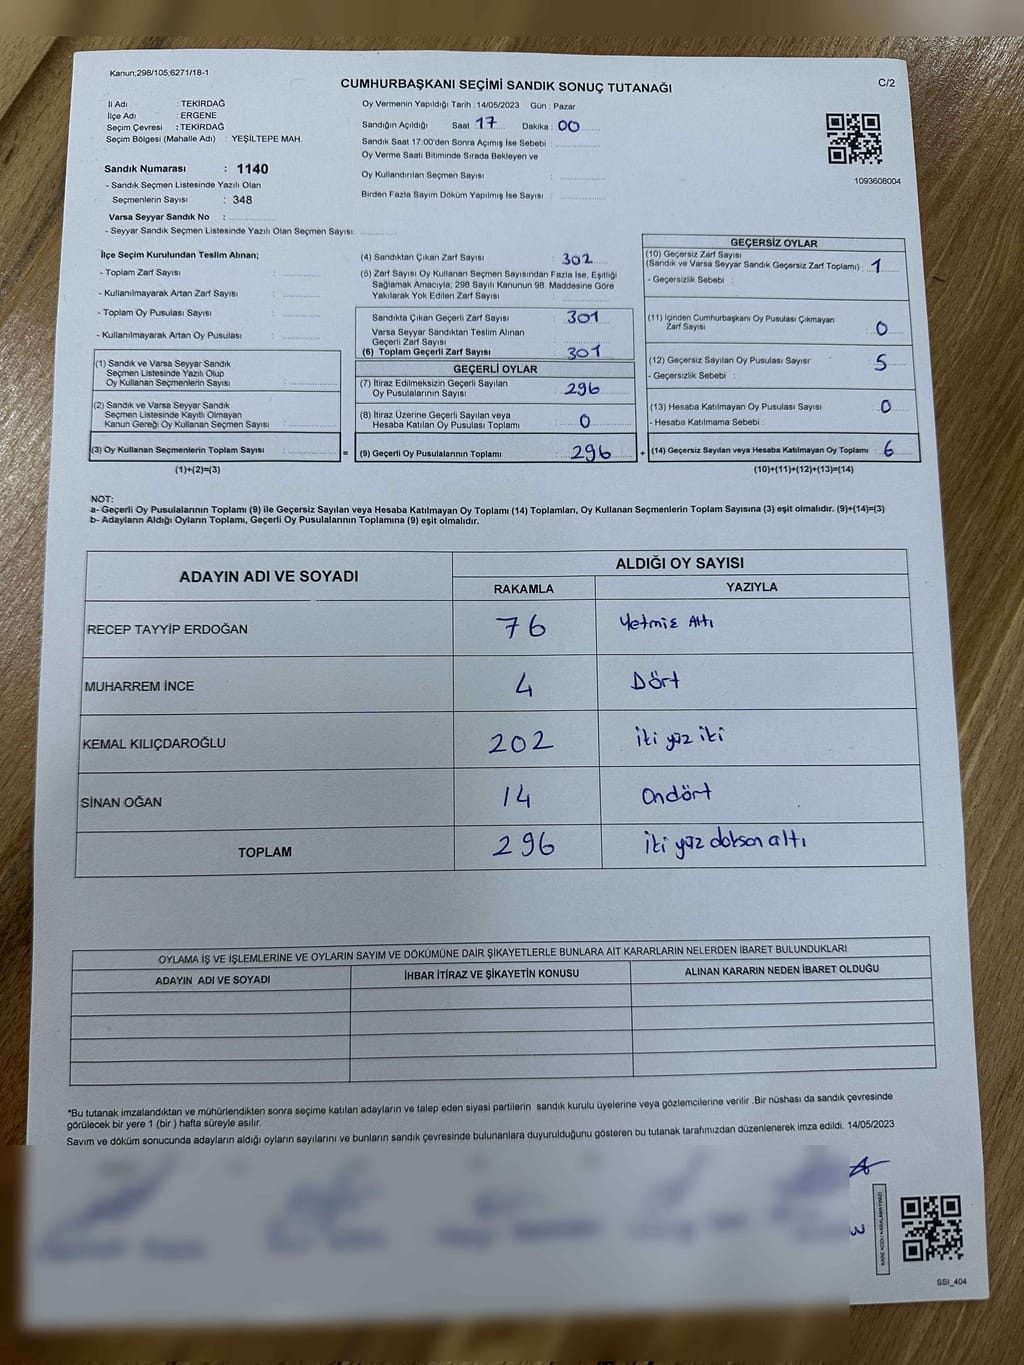 Kanun;298/105;6271/18-1
CUMHURBAŞKANI SEÇİMİ SANDIK SONUÇ TUTANAĞI
C/2
İl Adı : TEKİRDAĞ
İlçe Adı : ERGENE
Seçim Çevresi : TEKİRDAĞ
Seçim Bölgesi (Mahalle Adı) : YEŞİLTEPE MAH.
Sandık Numarası : 1140
- Sandık Seçmen Listesinde Yazılı Olan
Seçmenlerin Sayısı : 348
Varsa Seyyar Sandık No :
- Seyyar Sandık Seçmen Listesinde Yazılı Olan Seçmen Sayısı:
Oy Vermenin Yapıldığı Tarih : 14/05/2023 Gün : Pazar
Sandığın Açıldığı Saat : 17 Dakika : 00
Sandık Saat 17:00'den Sonra Açımış İse Sebebi :
Oy Verme Saati Bitiminde Sırada Bekleyen ve
Oy Kullandırılan Seçmen Sayısı :
Birden Fazla Sayım Döküm Yapılmış İse Sayısı :
1093608004
İlçe Seçim Kurulundan Teslim Alınan;
- Toplam Zarf Sayısı :
- Kullanılmayarak Artan Zarf Sayısı :
- Toplam Oy Pusulası Sayısı :
- Kullanılmayarak Artan Oy Pusulası :
(1) Sandık ve Varsa Seyyar Sandık
Seçmen Listesinde Yazılı Olup
Oy Kullanan Seçmenlerin Sayısı :
(2) Sandık ve Varsa Seyyar Sandık
Seçmen Listesinde Kayıtlı Olmayan
Kanun Gereği Oy Kullanan Seçmen Sayısı :
(3) Oy Kullanan Seçmenlerin Toplam Sayısı : =
(1)+(2)=(3)
(4) Sandıktan Çıkan Zarf Sayısı : 302
(5) Zarf Sayısı Oy Kullanan Seçmen Sayısından Fazla İse, Eşitliği
Sağlamak Amacıyla, 298 Sayılı Kanunun 98. Maddesine Göre
Yakılarak Yok Edilen Zarf Sayısı :
Sandıkta Çıkan Geçerli Zarf Sayısı : 301
Varsa Seyyar Sandıktan Teslim Alınan
Geçerli Zarf Sayısı :
(6) Toplam Geçerli Zarf Sayısı : 301
GEÇERLİ OYLAR
(7) İtiraz Edilmeksizin Geçerli Sayılan
Oy Pusulalarının Sayısı : 296
(8) İtiraz Üzerine Geçerli Sayılan veya
Hesaba Katılan Oy Pusulası Toplamı : 0
(9) Geçerli Oy Pusulalarının Toplamı : 296 +
GEÇERSİZ OYLAR
(10) Geçersiz Zarf Sayısı
(Sandık ve Varsa Seyyar Sandık Geçersiz Zarf Toplamı) : 1
- Geçersizlik Sebebi :
(11) İçinden Cumhurbaşkanı Oy Pusulası Çıkmayan
Zarf Sayısı : 0
(12) Geçersiz Sayılan Oy Pusulası Sayısı : 5
- Geçersizlik Sebebi :
(13) Hesaba Katılmayan Oy Pusulası Sayısı : 0
- Hesaba Katılmama Sebebi :
(14) Geçersiz Sayılan veya Hesaba Katılmayan Oy Toplamı : 6
(10)+(11)+(12)+(13)=(14)
NOT:
a- Geçerli Oy Pusulalarının Toplamı (9) ile Geçersiz Sayılan veya Hesaba Katılmayan Oy Toplamı (14) Toplamları, Oy Kullanan Seçmenlerin Toplam Sayısına (3) eşit olmalıdır. (9)+(14)=(3)
b- Adayların Aldığı Oyların Toplamı, Geçerli Oy Pusulalarının Toplamına (9) eşit olmalıdır.
ADAYIN ADI VE SOYADI
ALDIĞI OY SAYISI
RAKAMLA YAZIYLA
RECEP TAYYİP ERDOĞAN 76 Yetmiş Altı
MUHARREM İNCE 4 Dört
KEMAL KILIÇDAROĞLU 202 iki yüz iki
SİNAN OĞAN 14 Ondört
TOPLAM 296 iki yüz doksan altı
OYLAMA İŞ VE İŞLEMLERİNE VE OYLARIN SAYIM VE DÖKÜMÜNE DAİR ŞİKAYETLERLE BUNLARA AİT KARARLARIN NELERDEN İBARET BULUNDUKLARI
ADAYIN ADI VE SOYADI İHBAR İTİRAZ VE ŞİKAYETİN KONUSU ALINAN KARARIN NEDEN İBARET OLDUĞU
*Bu tutanak imzalandıktan ve mühürlendikten sonra seçime katılan adayların ve talep eden siyasi partilerin sandık kurulu üyelerine veya gözlemcilerine verilir .Bir nüshası da sandık çevresinde
görülecek bir yere 1 (bir ) hafta süreyle asılır.
Sayım ve döküm sonucunda adayların aldığı oyların sayılarını ve bunların sandık çevresinde bulunanlara duyurulduğunu gösteren bu tutanak tarafımızdan düzenlenerek imza edildi. 14/05/2023
KARE KODU KARALAMAYINIZ!
SSI_404